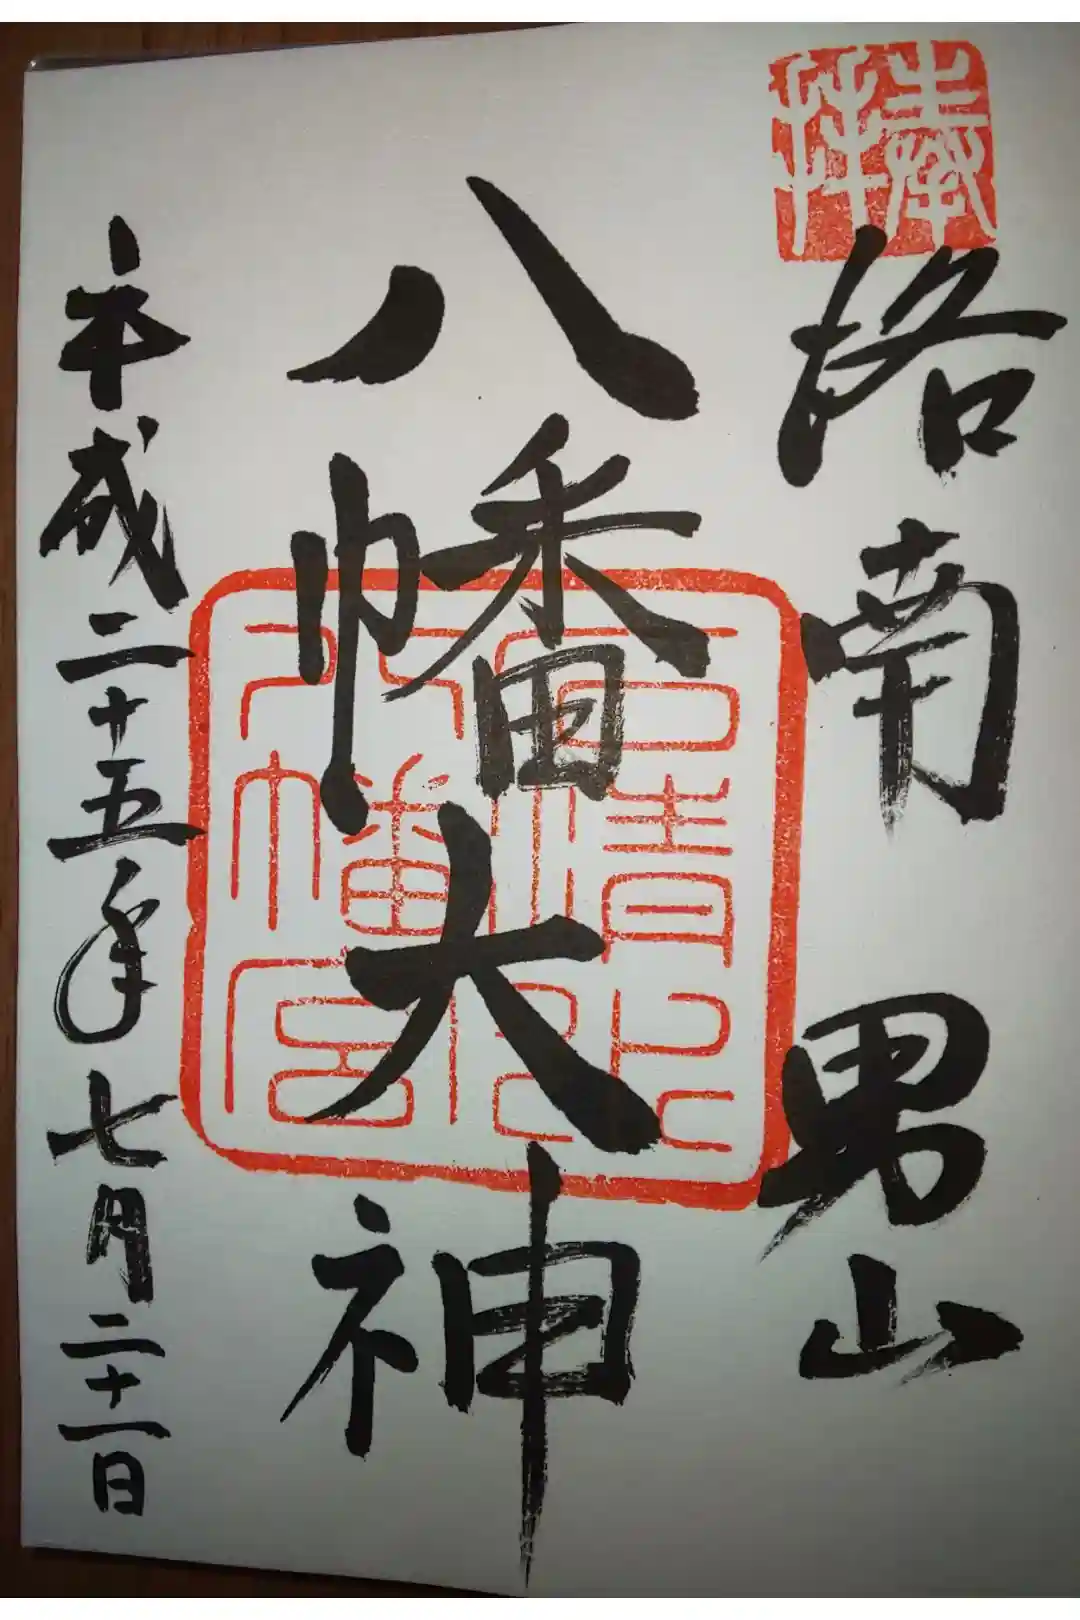 奉拝
洛南 男山
八幡大神
石清水
八幡宮
平成二十五年七月二十一日